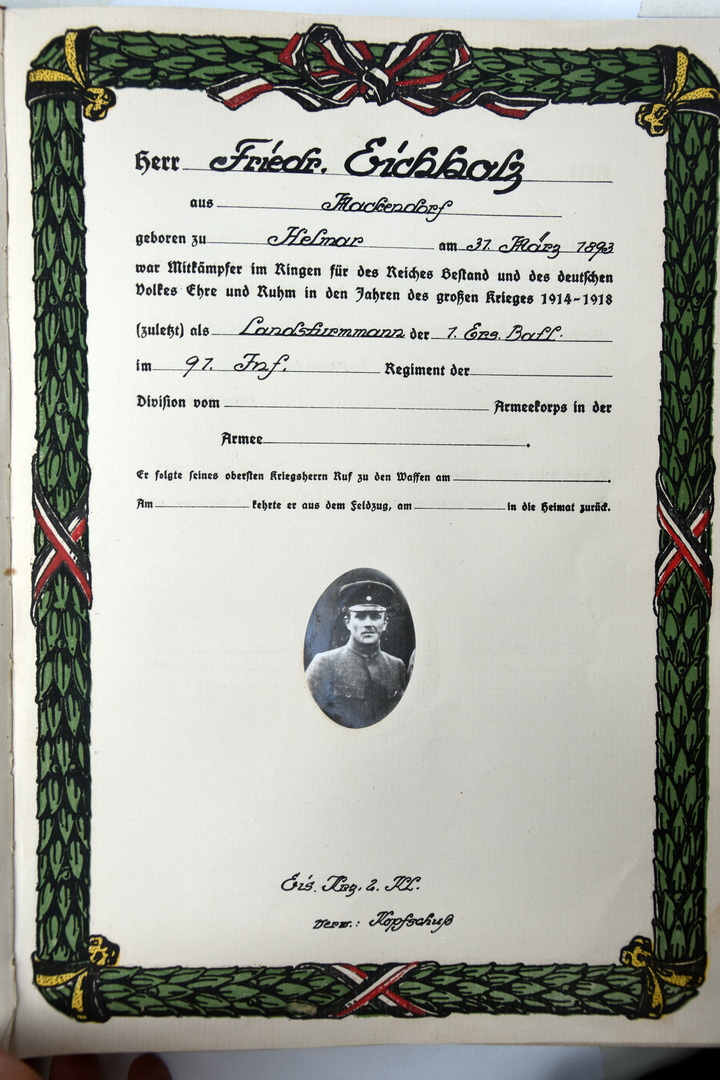 Herr Friedr. Eichholz
aus Mackendorf
geboren zu Helmar am 31. März 1893
war Mitkämpfer im Ringen für des Reiches Bestand und des deutschen
Volkes Ehre und Ruhm in den Jahren des großen Krieges 1914-1918
(zuletzt) als Landsturmmann der 1. Ers. Batl.
im 91. Inf. Regiment der
Division vom Armeekorps in der
Armee .
Er folgte seines obersten Kriegsherrn Ruf zu den Waffen am .
Am kehrte er aus dem Feldzug, am in die Heimat zurück.
Eis. Krz. 2. Kl.
verw.: Kopfschuß